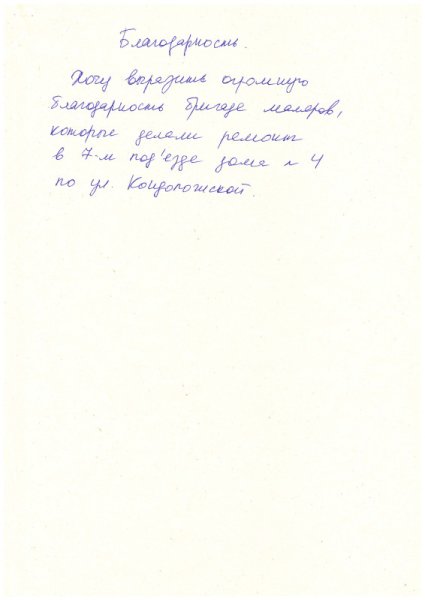 Благодарность.
Хочу выразить огромную
благодарность бригаде маляров,
которые делали ремонт
в 7-м под'езде дома № 4
по ул. Кондопожской.